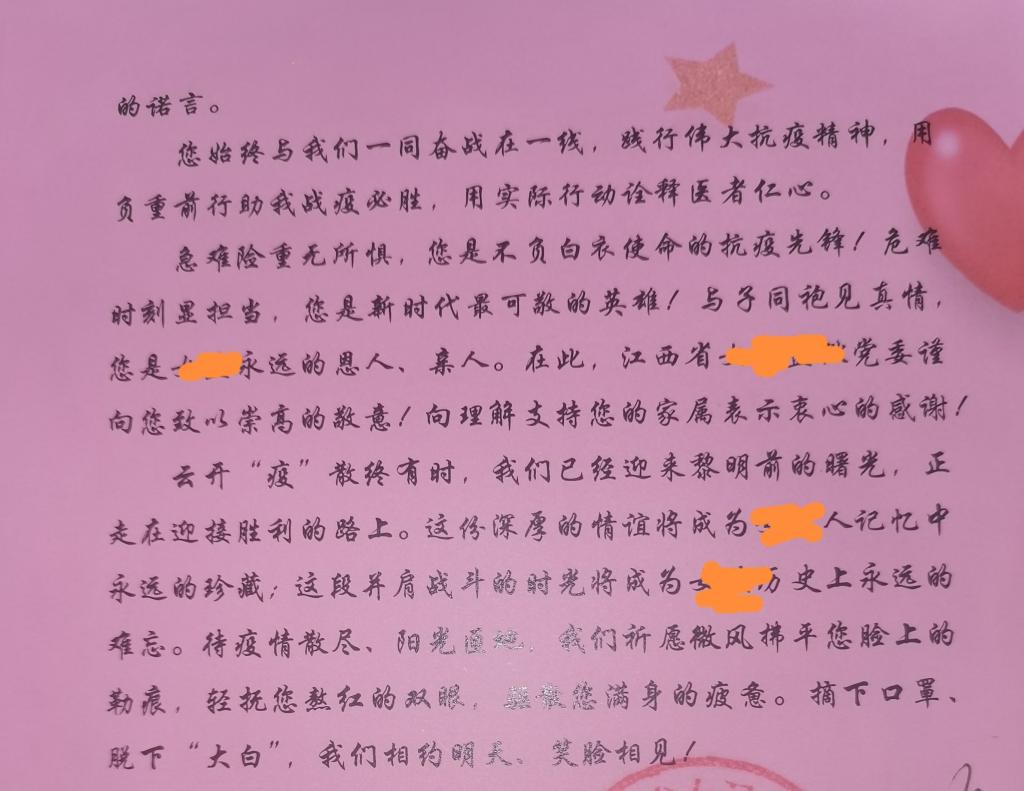 的诺言。
您始终与我们一同奋战在一线，践行伟大抗疫精神，用
负重前行助我战疫必胜，用实际行动诠释医者仁心。
急难险重无所惧，您是不负白衣使命的抗疫先锋！危难
时刻显担当，您是新时代最可敬的英雄！与子同袍见真情，
您是永远的恩人、亲人。在此，江西省党委谨
向您致以崇高的敬意！向理解支持您的家属表示衷心的感谢！
云开“疫”散终有时，我们已经迎来黎明前的曙光，正
走在迎接胜利的路上。这份深厚的情谊将成为人记忆中
永远的珍藏；这段并肩战斗的时光将成为历史上永远的
难忘。待疫情散尽、阳光遍地，我们祈愿微风拂平您脸上的
勒痕，轻抚您熬红的双眼，驱散您满身的疲惫。摘下口罩、
脱下“大白”，我们相约明天、笑脸相见！